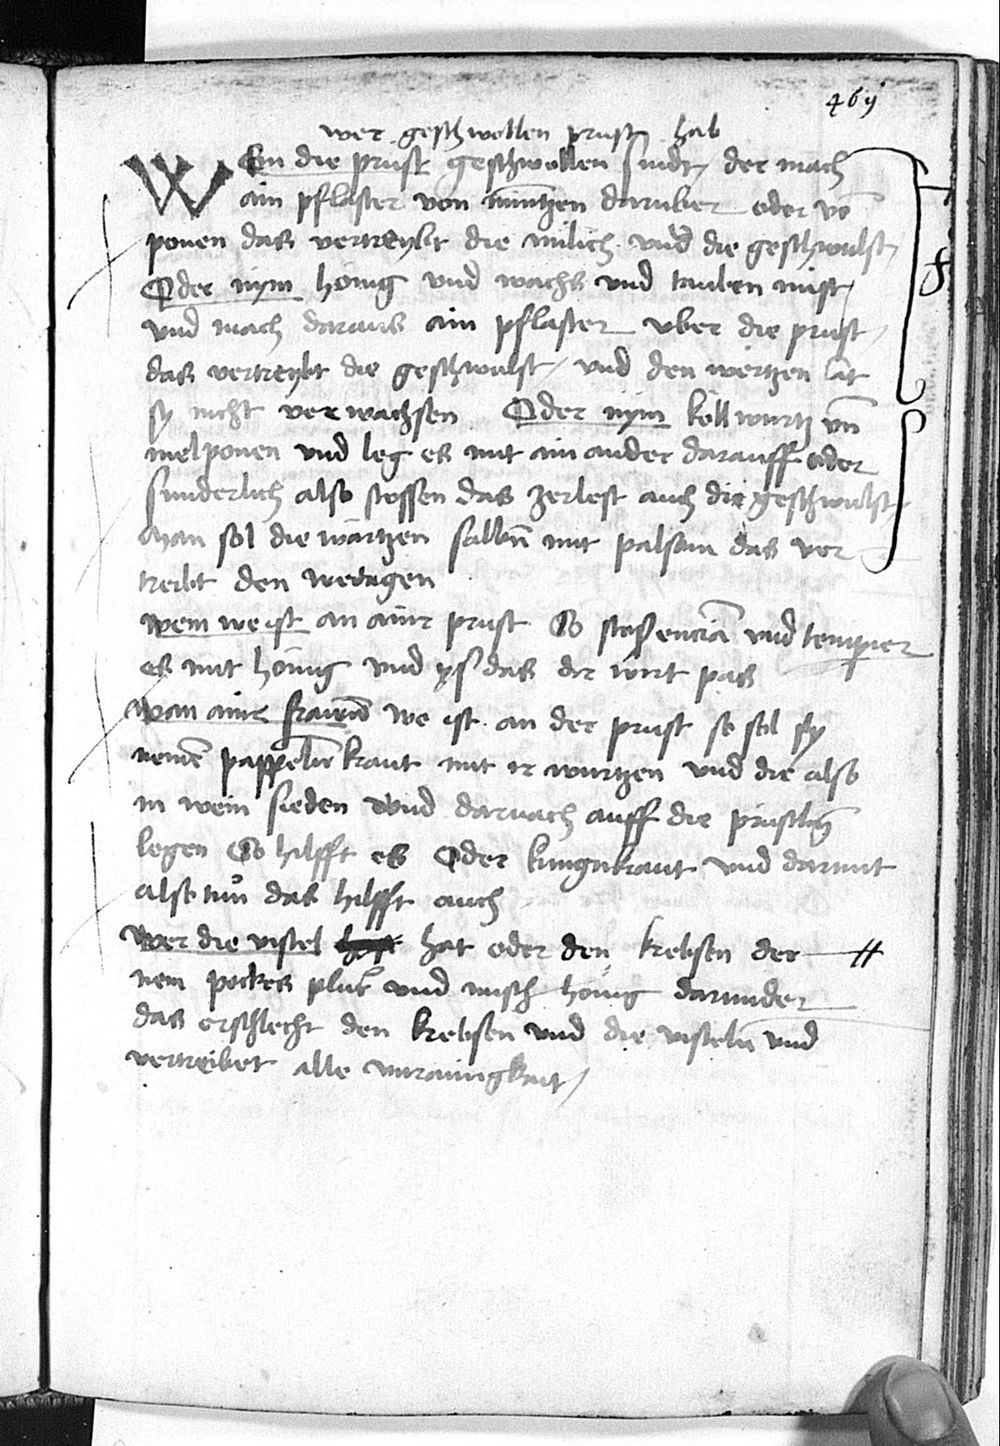 469
wer geschwollen prust hab
Wem die prust geschwollen sindt / der mach
ain pflaster von mintzen daruber oder vō
ponen das vertreybt die milich vnd die geschwulst /
Oder nym honig vnd wachs vnd tauben mist /
vnd mach daraus ain pflaster vber die prust /
das vertreybt die geschwulst / vnd den wertzen lat
sy nicht verwachsen Oder nym köllwurtz vn̄
melponen vnd leg es mit ain ander darauff oder
sunderlich also stossen das zerlest auch die geschwulst /
Man sol die wartzen salbn̄ mit palsam das ver
treibt den wetagen
wem we ist an ainer prust So stoß enciā vnd temperier
es mit honig vnd yß das dir wirt pas
wan ainer frawen we ist an der prust so sol sy
nemē pappeln kraut mit ir wurtzen vnd die also
in wein sieden vnd darnach auff die prustlen
legen So hilfft es Oder kungnkraut vnd darmit
also tun das hilfft auch
wer die vistel hat oder den krebsen der
nem pockes plut vnd misch honig darunder
das erschlecht den krebsen vnd die visteln vnd
vertreibet alle vnrainigkait /